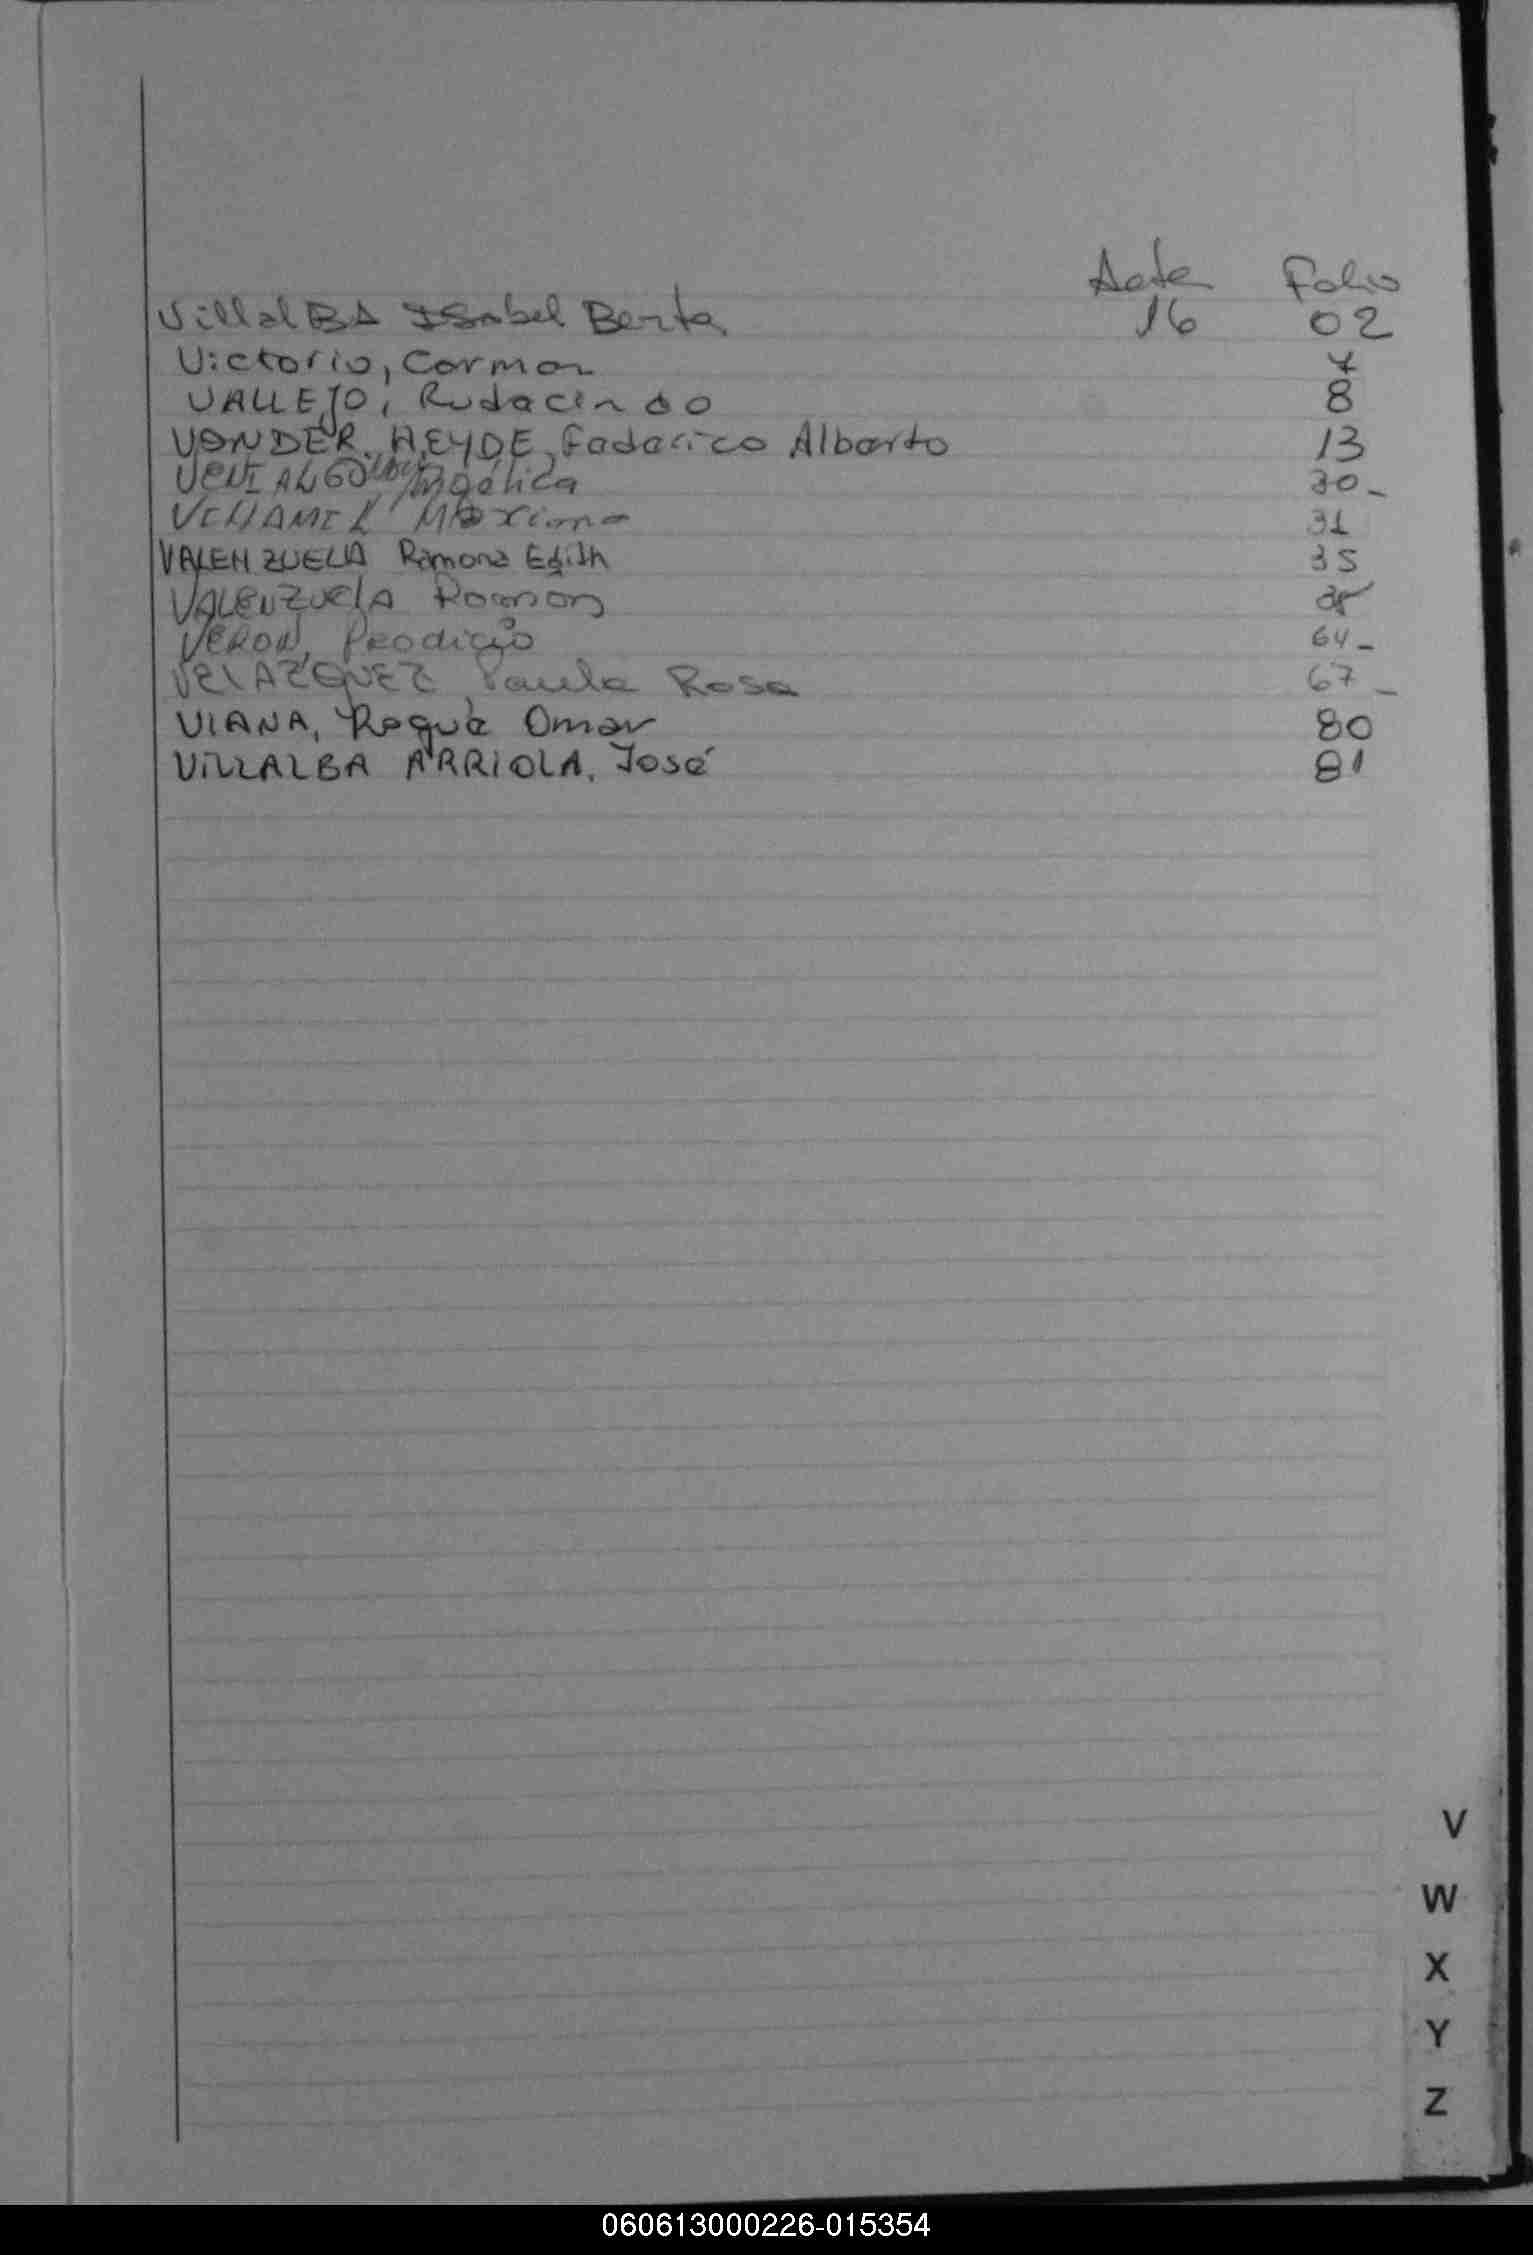 Acta Folio
Villalba Isabel Berta 16 02
Victorio, Carmen
VALLEJO, Rudacindo 8
VONDER HEYDE, Federico Alberto 13
Angélica 30-
Máximo 31
VALENZUELA Ramona Edith 35
VALENZUELA Ramon
VERON, 64-
VELAZQUEZ, Paula Rosa 67-
VIANA, Roque Omar 80
VILLALBA ARRIOLA, José 81
V
W
X
Y
Z
060613000226-015354